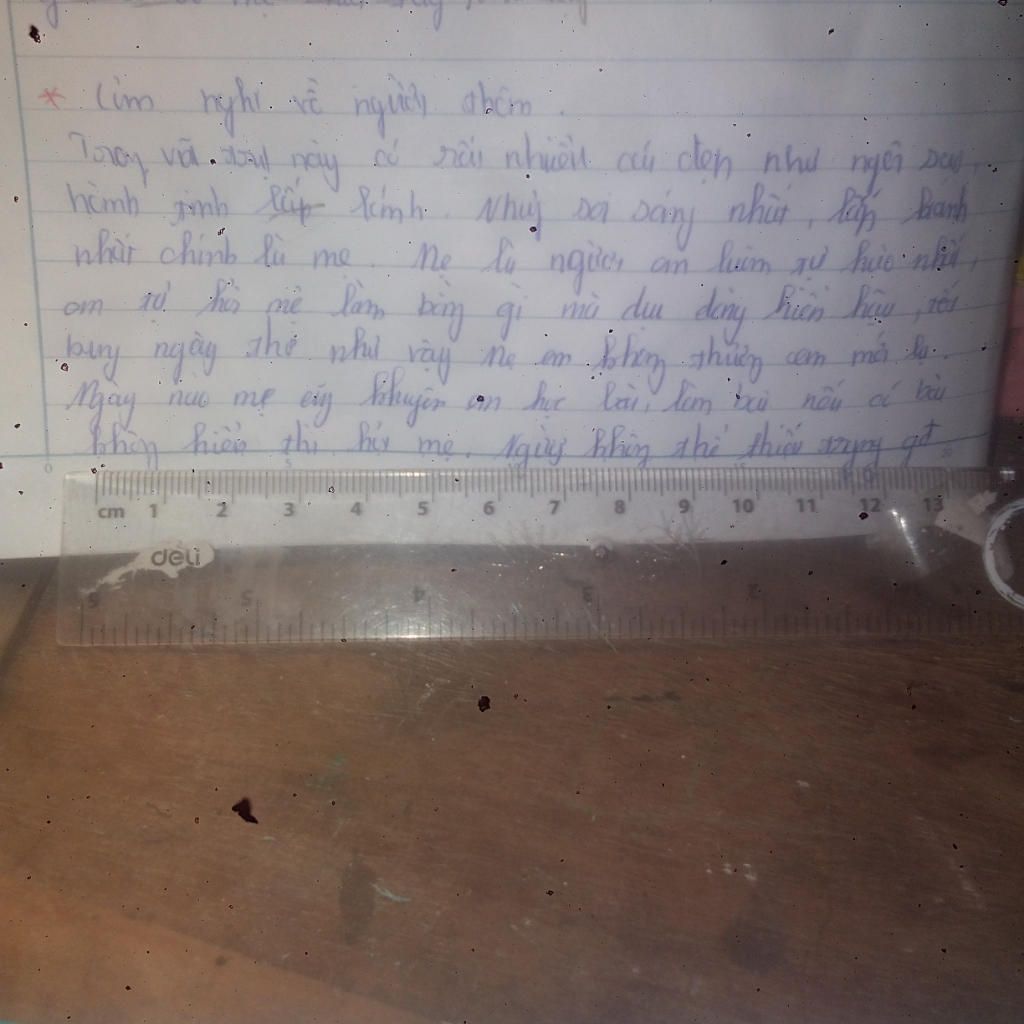 * Cảm nghĩ về người thân.
Trong vũ trụ này có rất nhiều cái đẹp như ngôi sao,
hành tinh lấp lánh. Nhưng soi sáng nhất, lấp lánh
nhất chính là mẹ. Mẹ là người em luôn tự hào nhất,
em tự hỏi mẹ làm bằng gì mà dịu dàng hiền hậu,
ngày thế như vậy Mẹ em không
Ngày nào mẹ cũng khuyên em học bài, làm bài nếu có bài
không hiểu thì hỏi mẹ. Người không thể thiếu trong gđ
cm 1 2 3 4 5 6 7 8 9 10 11 12 13
deli
6 5 4 3 2